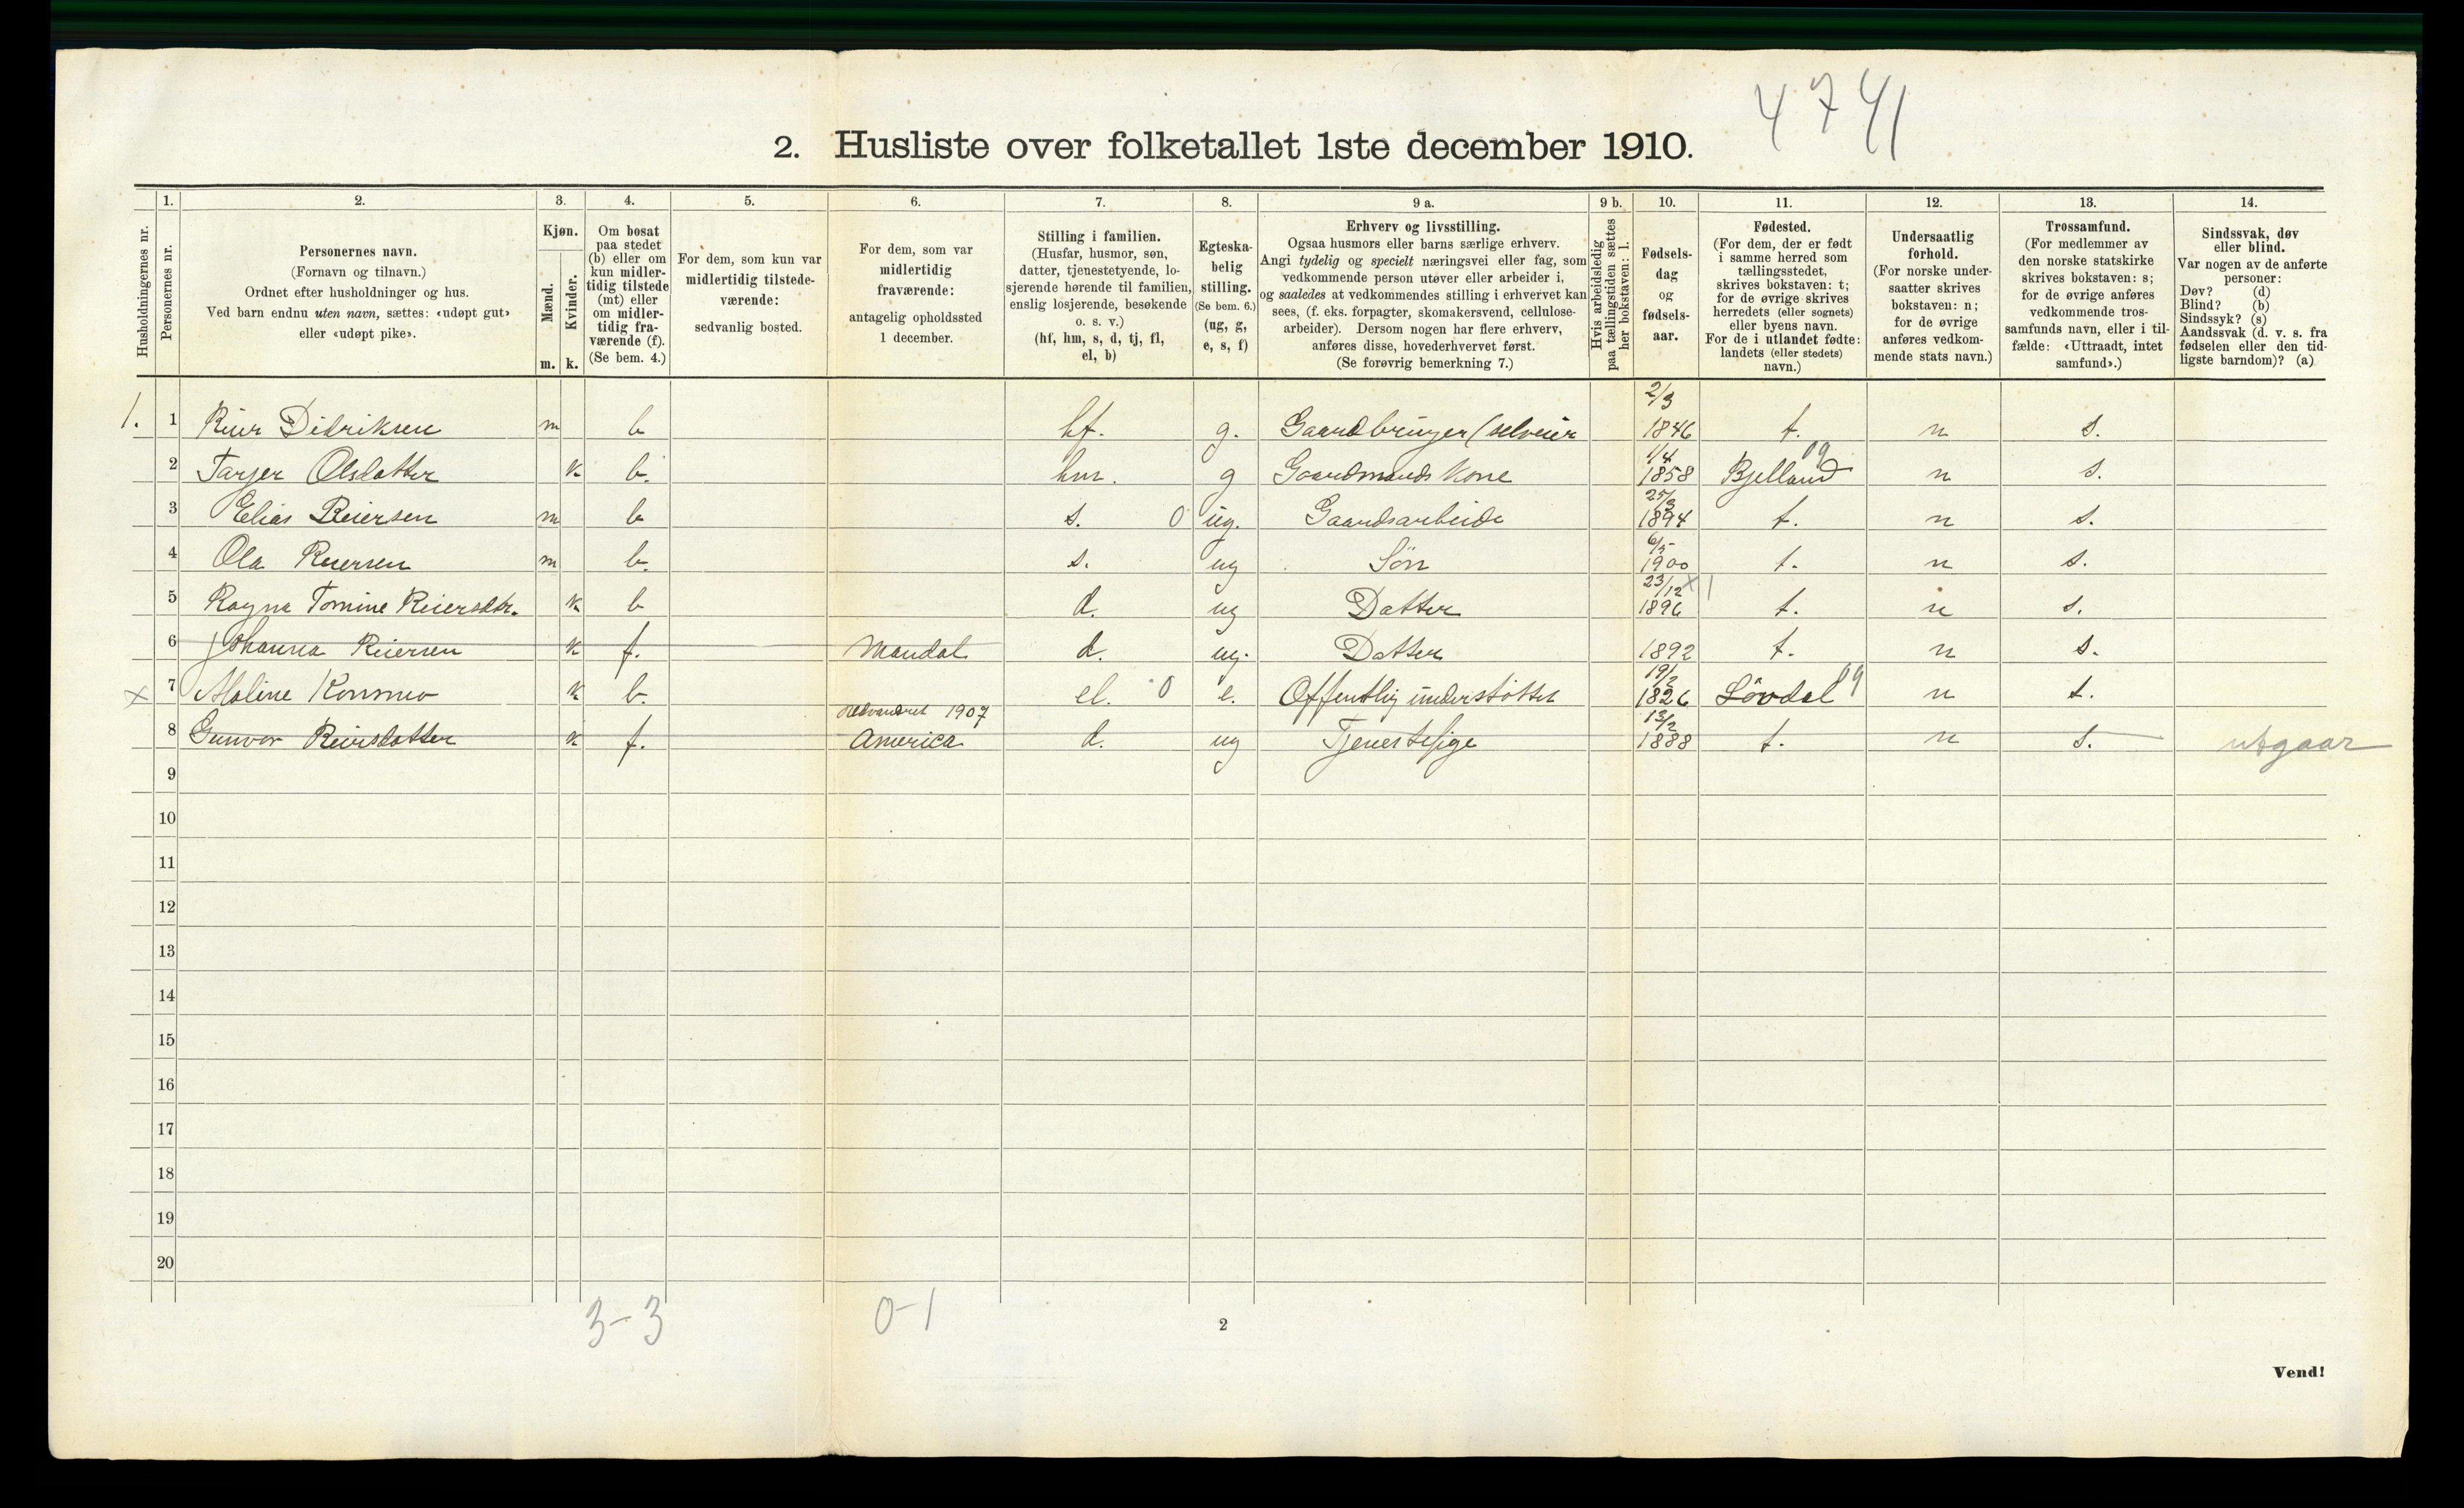 4741
2. Husliste over folketallet 1ste december 1910.
Husholdningernes nr.
1.
Personernes nr.
2.
Personernes navn.
(Fornavn og tilnavn.)
Ordnet efter husholdninger og hus.
Ved barn endnu uten navn, sættes: «udøpt gut»
eller «udøpt pike».
3.
Kjøn.
Mænd.
Kvinder.
m. k.
4.
Om bosat
paa stedet
(b) eller om
kun midler-
tidig tilstede
(mt) eller
om midler-
tidig fra-
værende (f).
(Se bem. 4.)
5.
For dem, som kun var
midlertidig tilstede-
værende:
sedvanlig bosted.
6.
For dem, som var
midlertidig
fraværende:
antagelig opholdssted
1 december.
7.
Stilling i familien.
(Husfar, husmor, søn,
datter, tjenestetyende, lo-
sjerende hørende til familien,
enslig losjerende, besøkende
o. s. v.)
(hf, hm, s, d, tj, fl,
el, b)
8.
Egteska-
belig
stilling.
(Se bem. 6.)
(ug, g,
e, s, f)
9 a.
Erhverv og livsstilling.
Ogsaa husmors eller barns særlige erhverv.
Angi tydelig og specielt næringsvei eller fag, som
vedkommende person utøver eller arbeider i,
og saaledes at vedkommendes stilling i erhvervet kan
sees, (f. eks. forpagter, skomakersvend, cellulose-
arbeider). Dersom nogen har flere erhverv,
anføres disse, hovederhvervet først.
(Se forøvrig bemerkning 7.)
9 b.
Hvis arbeidsledig
paa tællingstiden sættes
her bokstaven: l.
10.
Fødsels-
dag
og
fødsels-
aar.
11.
Fødested.
(For dem, der er født
i samme herred som
tællingsstedet,
skrives bokstaven: t;
for de øvrige skrives
herredets (eller sognets)
eller byens navn.
For de i utlandet fødte:
landets (eller stedets)
navn.)
12.
Undersaatlig
forhold.
(For norske under-
saatter skrives
bokstaven: n;
for de øvrige
anføres vedkom-
mende stats navn.)
13.
Trossamfund.
(For medlemmer av
den norske statskirke
skrives bokstaven: s;
for de øvrige anføres
vedkommende tros-
samfunds navn, eller i til-
fælde: «Uttraadt, intet
samfund».)
14.
Sindssvak, døv
eller blind.
Var nogen av de anførte
personer:
Døv? (d)
Blind? (b)
Sindssyk? (s)
Aandssvak (d. v. s. fra
fødselen eller den tid-
ligste barndom)? (a)
1. 1 Reier Didriksen m b hf. g. Gaardbruger (selveier 2/3 1846 t. n s.
2 Tarjer Olsdatter k b. hm. g Gaardmands Kone 1/4 1858 Bjelland 09 n s.
3 Elias Reiersen m b s. 0 ug. Gaardsarbeide 25/3 1894 t. n s.
4 Ola Reiersen m b. s. ug Søn 6/5 1900 t. n s.
5 Ragna Tomine Reiersdtr. k b d. ug Datter 23/12 1896 x1 t. n s.
6 Johanna Reiersen k f. Mandal d. ug. Datter 1892 t. n s.
x 7 Maline Kommo k b. el. 0 e. Offentlig understøttet 19/2 1826 Løvdal 09 n s.
8 Gunvor Reiersdatter k f. Udvandret 1907 America d. ug Tjenestepige 13/2 1888 t. n s. utgaar
9
10
11
12
13
14
15
16
17
18
19
20
3-3
0-1
2
Vend!